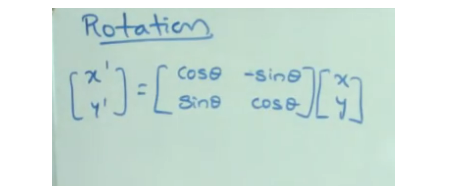 Rotation
[x'] = [cosθ -sinθ][x]
[y']   [sinθ cosθ][y]